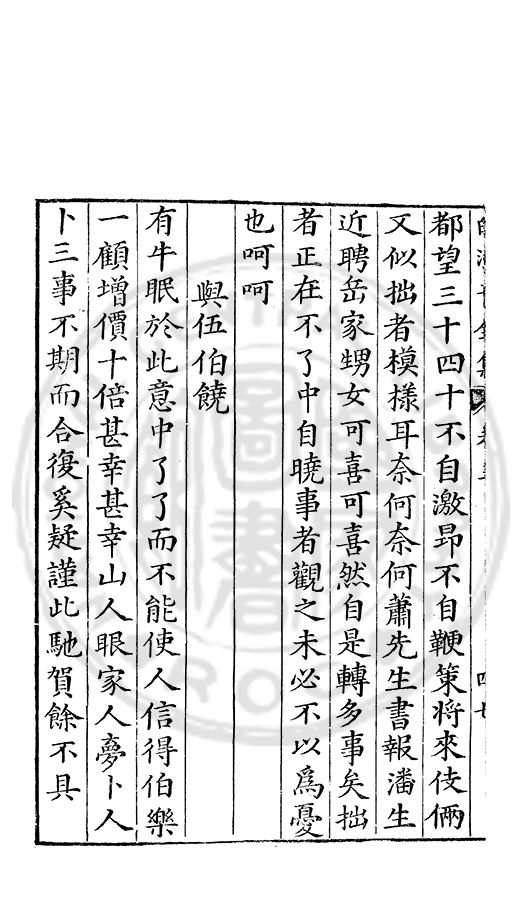 都望三十四十不自激昻不自鞭策將來伎倆
又似拙者模樣耳奈何奈何蕭先生書報潘生
近聘岳家甥女可喜可喜然自是轉多事矣拙
者正在不了中自曉事者觀之未必不以爲憂
也呵呵
與伍伯饒
有牛眠於此意中了了而不能使人信得伯樂
一顧增價十倍甚幸甚幸山人眼家人夣卜人
卜三事不期而合復奚疑謹此馳賀餘不具